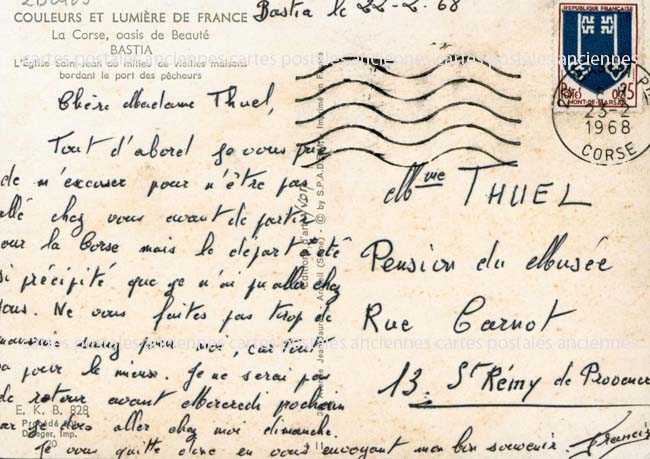 COULEURS ET LUMIÈRE DE FRANCE
La Corse, oasis de Beauté
BASTIA
L'Eglise Saint-Jean au milieu de vieilles maisons
bordant le port des pêcheurs
Bastia le 22-2-68
Chère Madame Thuel,
Tout d'abord je vous prie
de m'excuser pour n'être pas
allé chez vous avant de partir
pour la Corse mais le départ a été
si précipité que je n'ai pu aller chez
vous. Ne vous faites pas trop de
mauvais sang pour moi, car tout
va pour le mieux. Je ne serai pas
de retour avant Mercredi prochain
car je dois aller chez moi dimanche.
Je vous quitte donc en vous envoyant mon bon souvenir. Francis
E. K. B. 828
Draeger, Imp.
Yvon
© by S.P.A.D.E.M.
Imprimé en France
REPUBLIQUE FRANÇAISE
MONT-DE-MARSAN
23-2
1968
CORSE
Mme THUEL
Pension du Musée
Rue Carnot
13. St Rémy de Provence
cartes postales anciennes cartes postales anciennes
cartes postales anciennes cartes postales anciennes